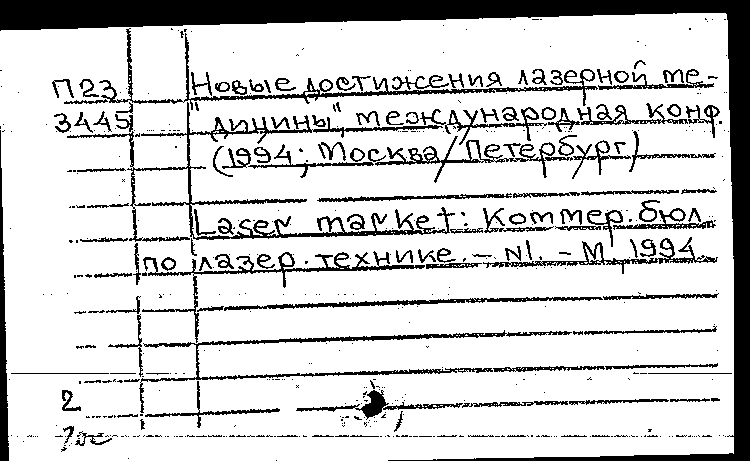 П23 Новые достижения лазерной ме-
3445 дицины", международная конф.
(1994; Москва/Петербург)
Laser market: Коммер. бюл.
по лазер. технике. – N1. – М., 1994.
2